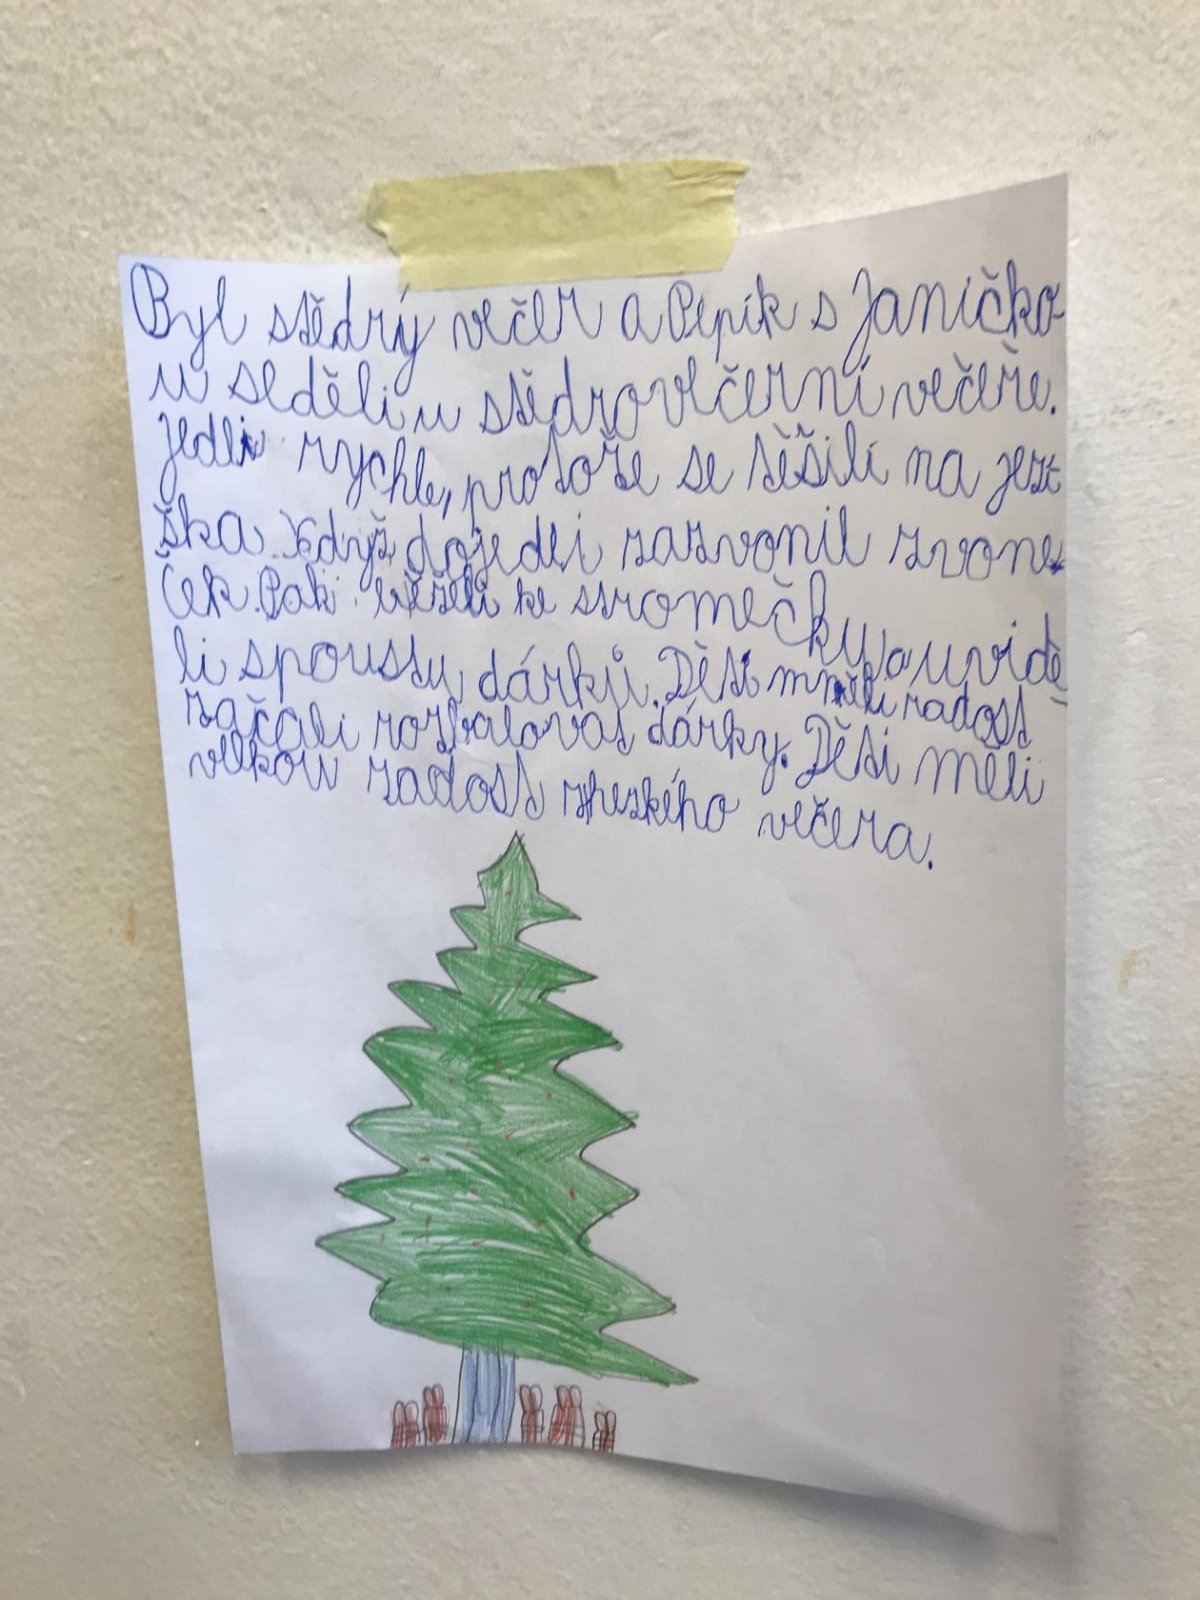 Byl stědrý večer a Pepik s Janičko-
u seděli u stědrovečerní večeře.
Jedli rychle, protože se těšili na jez
ška. Když dojedli zazvonil zvone
ček. Pak běželi ke stromečky a uvidě
li spoustu dárků. Děti mněli radost
začali rozbalovat dárky. Děti měli
velkou radost zhezkého večera.